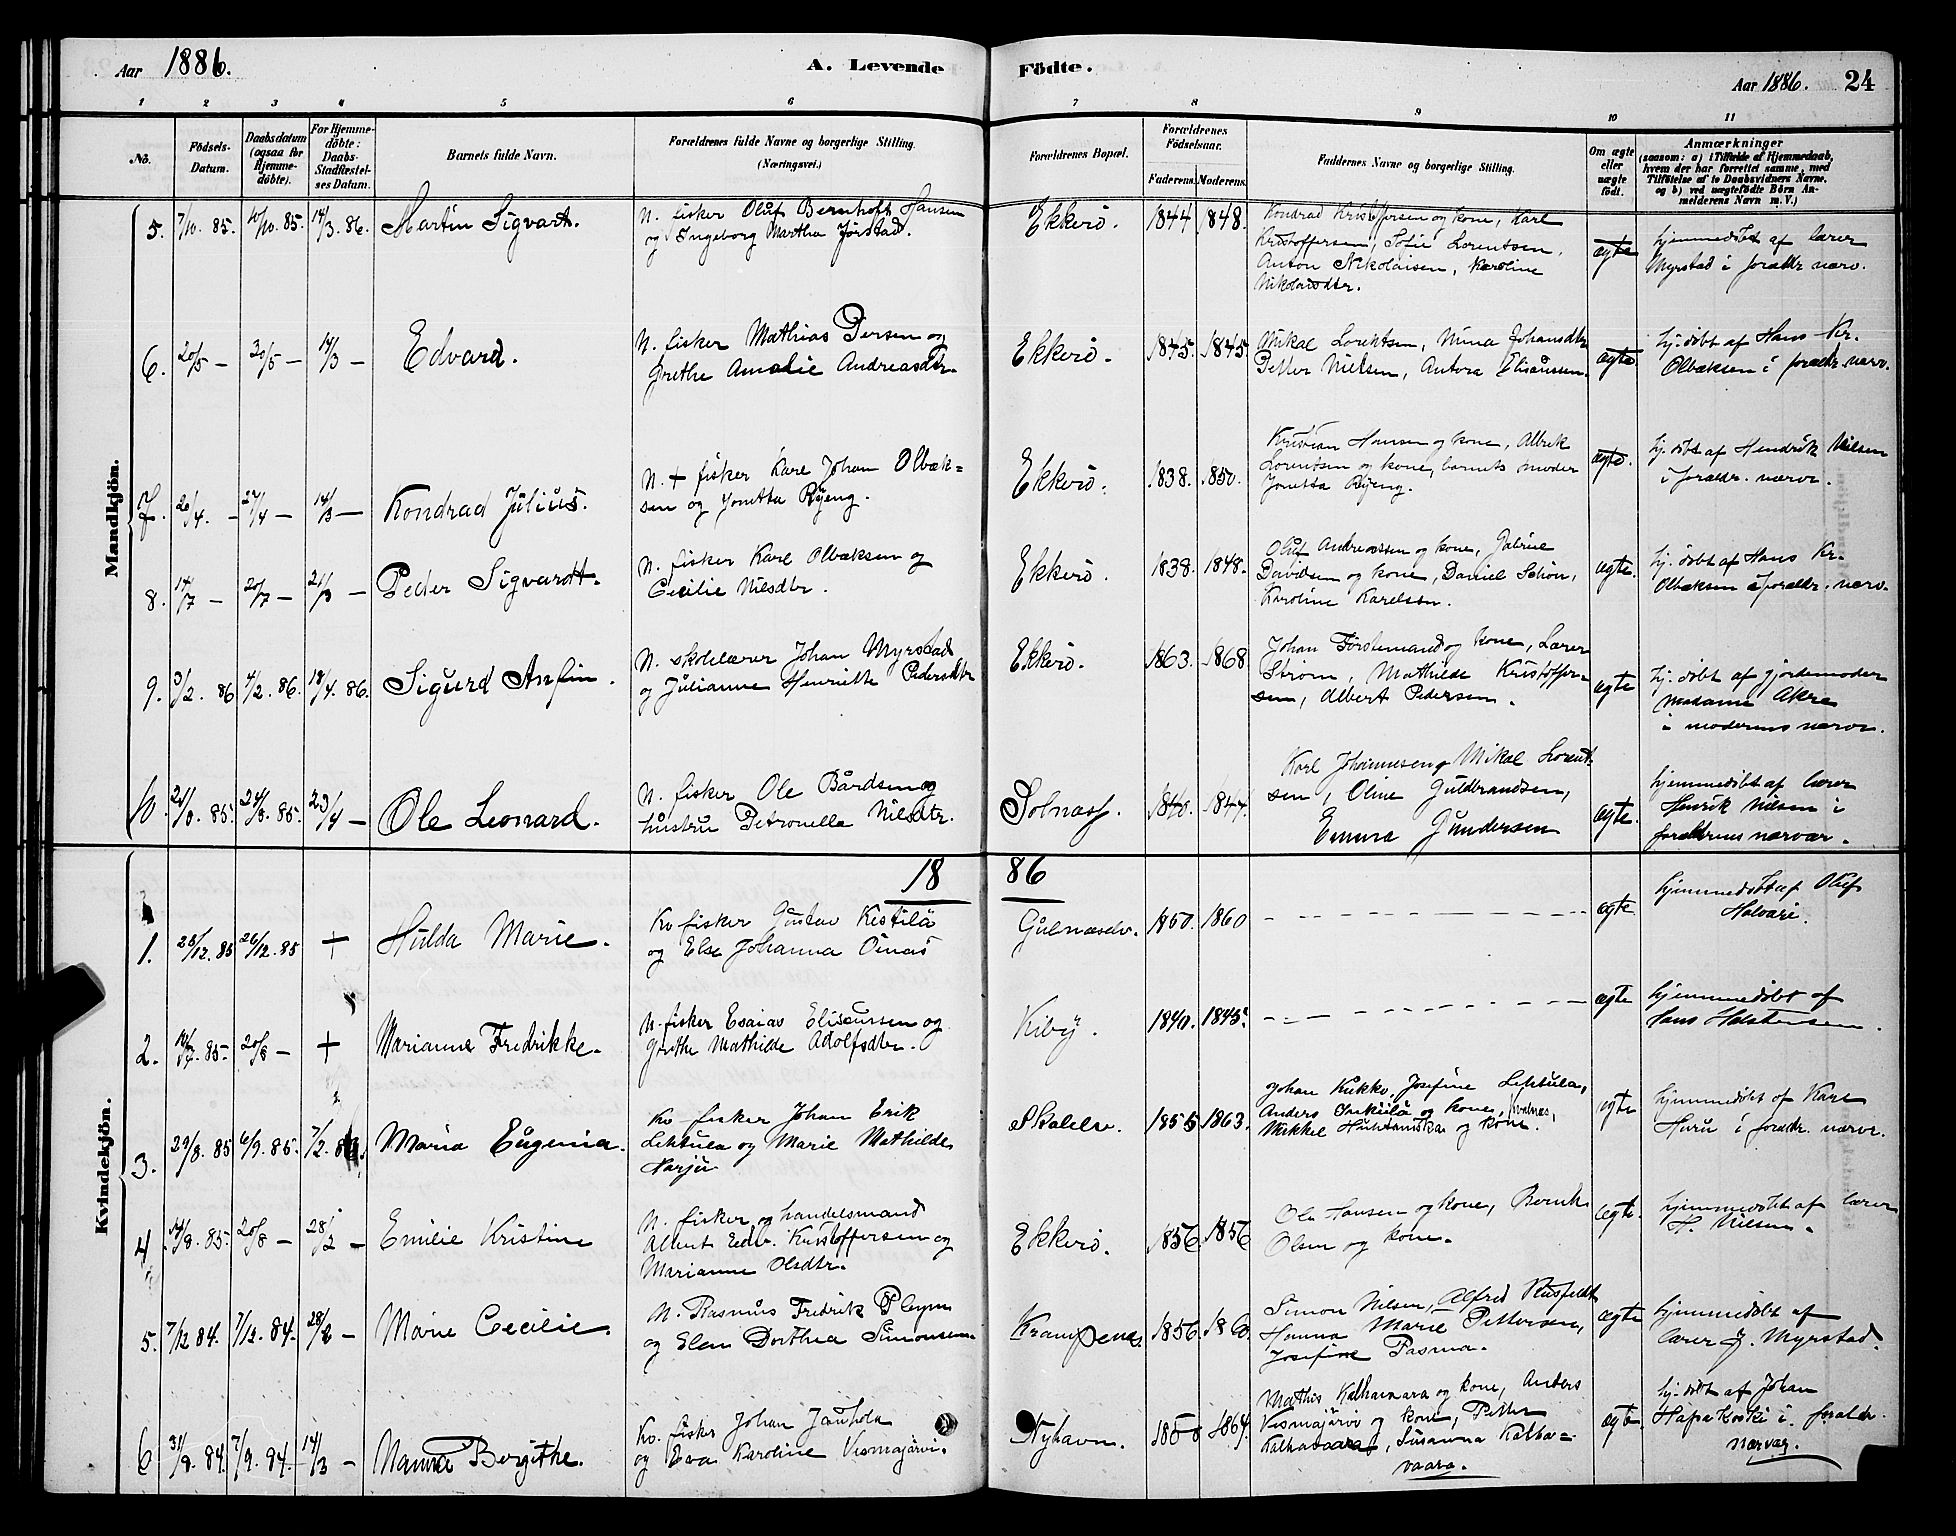 Aar 1886.
A. Levende Födte.
Aar 1886. 24
1 2 3 4 5 6 7 8 9 10 11
No.
Födsels-Datum.
Daabsdatum (ogsaa for Hjemmedöbte).
For Hjemmedöbte: Daabs-Stadfæstelses Datum.
Barnets fulde Navn.
Forældrenes fulde Navne og borgerlige Stilling.
(Næringsvei.)
Forældrenes Bopæl.
Forældrenes Födselsaar.
Faderens. Moderens.
Faddernes Navne og borgerlige Stilling.
Om ægte eller uægte födt.
Anmærkninger
(saasom: a) i Tilfælde af Hjemmedaab, hvem der har forrettet samme, med Tilföielse af to Daabsvidners Navne, og b) ved uægtefödte Börn Anmelderens Navn m. V.)
Mandkjön.
5. 7/10. 85. 10/10. 85. 14/3. 86. Martin Sigvart.
N. fisker Oluf Bernhoft Hansen
og Ingeborg Martha Jörstad.
Ekkerö. 1844 1848.
Kondrad Kristoffersen og kone, Karl
Kristoffersen, Sofie Lorentsen,
Anton Nikolaisen, Karoline
Nikolaisdtr.
ægte
hjemmedöbt af lærer
Myrstad i forældr. nærv.
6. 20/5 — 30/5 — 14/3 — Edvard.
N. fisker Mathias Persen og
Grethe Amalie Andreasdtr.
Ekkerö. 1845. 1845
Mikal Lorentsen, Nina Johansdtr
Petter Nielsen, Antora Elisæussen.
ægte
hj. döbt af Hans Kr.
Olbæksen i forældr. nærv.
7. 26/4. — 27/4 — 14/3 — Kondrad Julius.
N. + fisker Karl Johan Olbæk=
sen og Jonetta Ryeng.
Ekkerö. 1838. 1850.
Kristian Hansen og kone, Albrik
Lorentsen og kone, barnets moder
Jonetta Ryeng.
ægte.
hj. döbt af Hendrik Nilsen
i forældr. nærv.
8. 14/7 — 20/7 — 21/3 — Peder Sigvardt.
N. fisker Karl Olbæksen og
Cecilie Nilsdtr.
Ekkerö. 1838. 1848.
Oluf Andreassen og kone, Gabriel
Davidsen og kone, Daniel Schön,
Karoline Karelsen.
ægte.
hj. döbt af Hans Kr.
Olbæksen i forældr. nærv.
9. 3/2. 86 4/2. 86. 18/4. 86. Sigurd Anfin.
N. skolelærer Johan Myrstad
og Julianne Henriette Pedersdtr
Ekkerö. 1863. 1868.
Johan Förstemand og kone, Lærer
Ström, Mathilde Kristoffer-
sen, Albert Pedersen.
ægte
hj. döbt af gjordemoder
madame Akre
i moderens nærv.
10. 21/8. 85. 24/8. 85. 23/4 — Ole Leonard.
N. fisker Ole Bårdsen og
hustru Petronella Nilsdtr.
1840. 1844.
Karl Johannesen, Mikal Lorent
sen, Oline Guldbrandsen,
Emma Gundersen
ægte.
hjemmedöbt af lærer
Henrik Nilsen i
forældrenes nærvær.
1886
Kvindekjön.
1. 25/12. 85 26/12. 85 + Hulda Marie.
Kv. fisker Gustav Kestilä
og Else Johanna Oinas
Gulnæselv. 1850. 1860
ægte
hjemmedöbt af Oluf
Halvari.
2. 85. 20/8 — + Marianne Fredrikke.
N. fisker Esaias Elisæussen og
Grethe Mathilde Adolfsdtr.
Kiby. 1840. 1845.
ægte
hjemmedöbt af
Hans Holstensen.
3. 29/8. 85 6/9. 85. 7/2. 86. Maria Eugenia.
Kv. fisker Johan Erik
Lehtula og Marie Mathilde
Narju
Skalelv. 1855 1863.
Johan Kukko, Josefine Lehtula,
Anders og kone,
Mikkel og kone.
ægte
hjemmedöbt af Karl
Huru i forældr. nærv.
4. 14/8. 85. 20/8 — 28/2 — Emilie Kristine
N. fisker og handelsmand
Albert Edv. Kristoffersen og
Marianne Olsdtr.
Ekkerö. 1856. 1856
Ole Hansen og kone, Bernh.
Olsen og kone.
ægte.
hjemmedöbt af lærer
H. Nilsen.
5. 7/12 84. 7/12. 84. 28/2 — Marie Cecilie.
N. Rasmus Fredrik Pleym
og Elen Dorthea Simonsen
Krampenes. 1856.
Simon Nilsen, Alfred Rusfeldt
Hanna Marie Pettersen,
Josefine Pasma.
ægte
hjemmedöbt af
lærer J. Myrstad.
6 31/8. 84. 7/9. 84. 14/3 — Manna Bergithe.
Kv. fisker Johan Jauhola
og Eva Karoline Vismajärvi.
Nyhavn. 1864.
Mathis Kalhavaara og kone, Anders
Vismajärvi og kone, Petter
Kalhavaara, Susanna Kalha=
vaara.
ægte
hj. döbt af Johan
Hapakoski i foreldr.
nærvær.